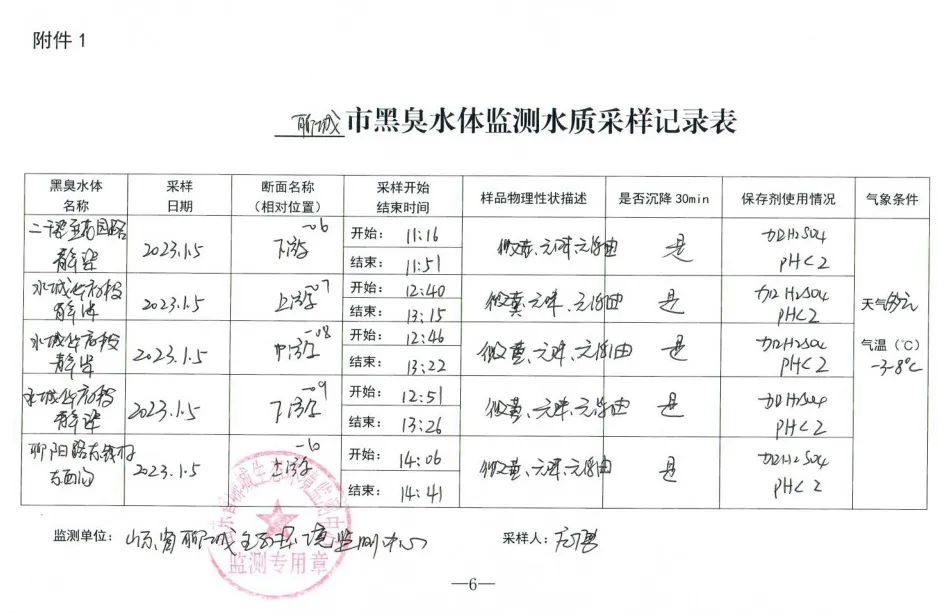 附件 1
聊城市黑臭水体监测水质采样记录表
黑臭水体名称 采样日期 断面名称(相对位置) 采样开始结束时间 样品物理性状描述 是否沉降30min 保存剂使用情况 气象条件
2023.1.5 下游-06 开始: 11:16 微黄、无味、无浮油 是 加H₂SO₄
结束: 11:51 pH<2
2023.1.5 上游-07 开始: 12:40 微黄、无味、无浮油 是 加H₂SO₄ 天气
结束: 13:15 pH<2
2023.1.5 中游-08 开始: 12:46 微黄、无味、无浮油 是 加H₂SO₄ 气温(℃)
结束: 13:22 pH<2 -3-8℃
2023.1.5 下游-09 开始: 12:51 微黄、无味、无浮油 是 加H₂SO₄
结束: 13:26 pH<2
2023.1.5 上游-10 开始: 14:06 微黄、无味、无浮油 是 加H₂SO₄
结束: 14:41 pH<2
监测单位: 山东省聊城生态环境监测中心 采样人:
监测专用章
—6—